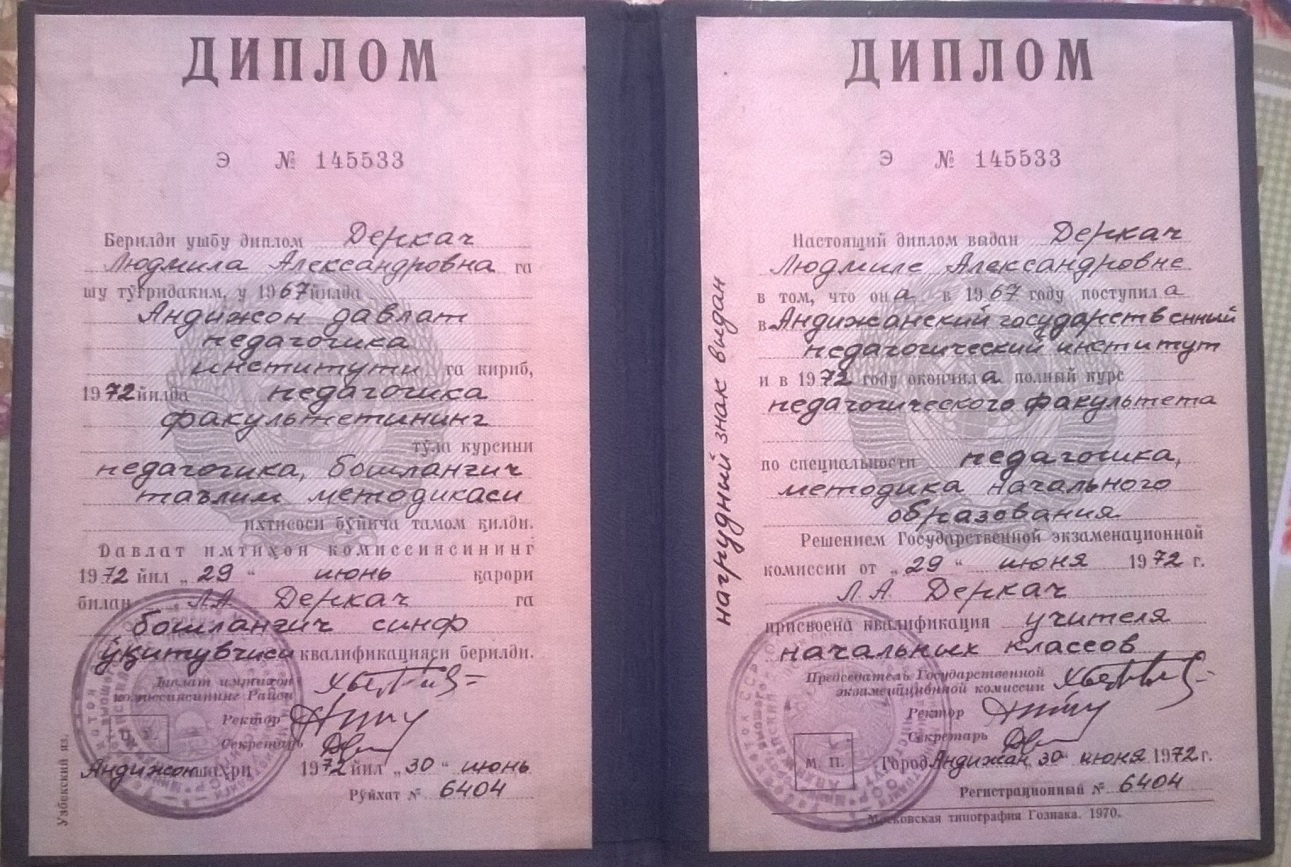 ДИПЛОМ
Э № 145533
Берилди ушбу диплом Деркач
Людмила Александровна га
шу тўғридаким, у 1967 йилда
Андижон давлат
педагогика
институти га кириб,
1972 йилда педагогика
факультетининг
тўла курсини
педагогика, бошланғич
таълим методикаси
ихтисоси бўйича тамом қилди.
Давлат имтиҳон комиссиясининг
1972 йил „29“ июнь қарори
билан Л.А. Деркач га
бошланғич синф
ўқитувчиси квалификацияси берилди.
Давлат имтиҳон
комиссиясининг Раиси
Ректор
Секретарь
Андижон шаҳри 1972 йил „30“ июнь
Рўйхат № 6404
Узбекский яз.
ДИПЛОМ
Э № 145533
Настоящий диплом выдан Деркач
Людмиле Александровне
в том, что она в 1967 году поступила
в Андижанский государственный
педагогический институт
и в 1972 году окончила полный курс
педагогического факультета
по специальности педагогика,
методика начального
образования
Решением Государственной экзаменационной
комиссии от „29“ июня 1972 г.
Л.А. Деркач
присвоена квалификация учителя
начальных классов
Председатель Государственной
экзаменационной комиссии
Ректор
Секретарь
М. П.
Город Андижан 30 июня 1972 г.
Регистрационный № 6404
Московская типография Гознака. 1970.
нагрудный знак выдан